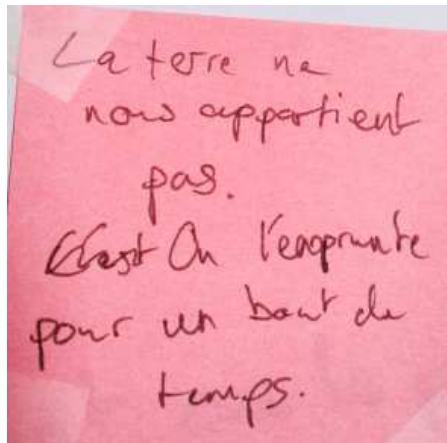 La terre ne
nous appartient
pas.
C'est On l'emprunte
pour un bout de
temps.